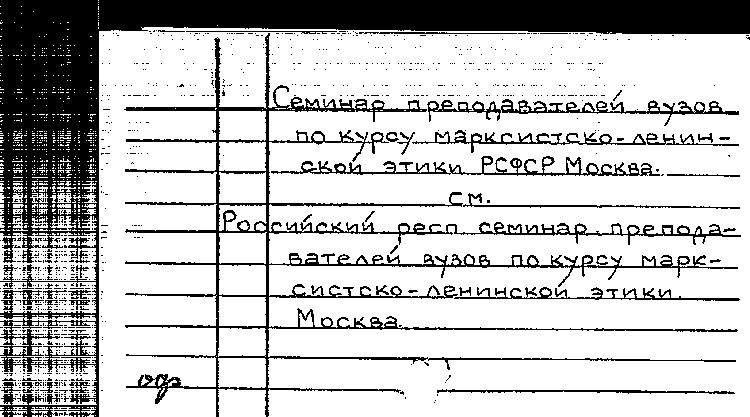 Семинар преподавателей вузов
по курсу марксистско-ленин-
ской этики РСФСР Москва.
см.
Российский респ семинар препода-
вателей вузов по курсу марк-
систско-ленинской этики.
Москва